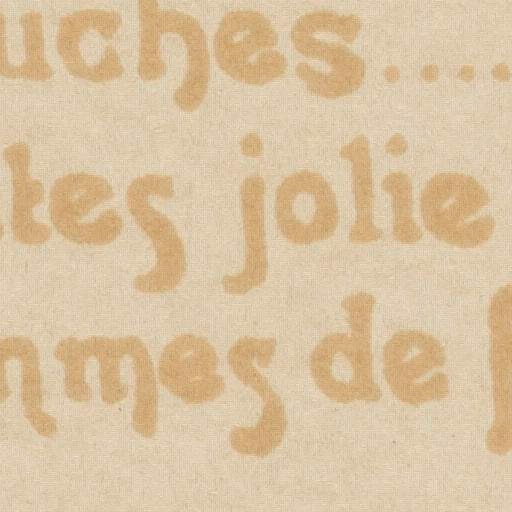 uches....
tes jolie
mmes de